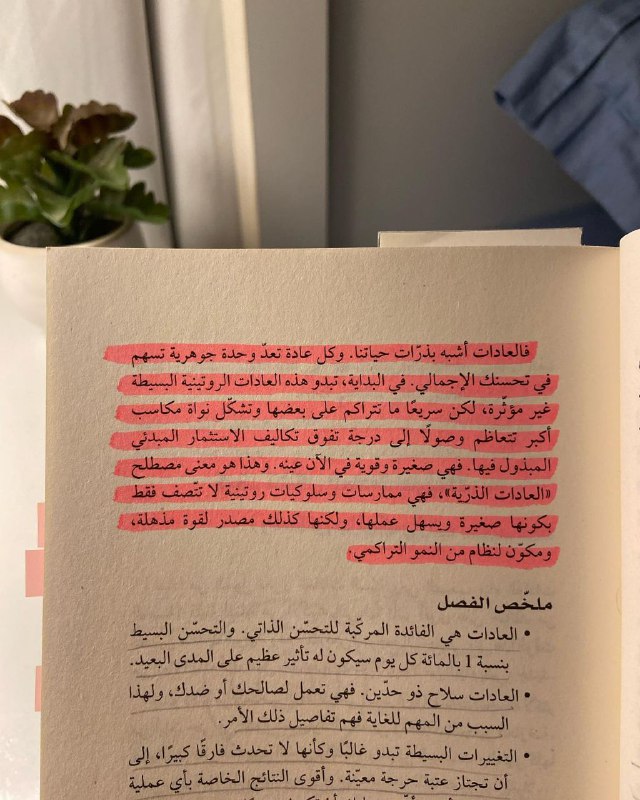 فالعادات أشبه بذرّات حياتنا. وكل عادة تعدّ وحدة جوهرية تسهم
في تحسنك الإجمالي. في البداية، تبدو هذه العادات الروتينية البسيطة
غير مؤثّرة، لكن سريعًا ما تتراكم على بعضها وتشكّل نواة مكاسب
أكبر تتعاظم وصولًا إلى درجة تفوق تكاليف الاستثمار المبدئي
المبذول فيها. فهي صغيرة وقوية في الآن عينه. وهذا هو معنى مصطلح
«العادات الذرّية»، فهي ممارسات وسلوكيات روتينية لا تتّصف فقط
بكونها صغيرة ويسهل عملها، ولكنها كذلك مصدر لقوة مذهلة،
ومكوّن لنظام من النمو التراكمي.
ملخّص الفصل
• العادات هي الفائدة المركّبة للتحسّن الذاتي. والتحسّن البسيط
بنسبة 1 بالمائة كل يوم سيكون له تأثير عظيم على المدى البعيد.
• العادات سلاح ذو حدّين. فهي تعمل لصالحك أو ضدك، ولهذا
السبب من المهم للغاية فهم تفاصيل ذلك الأمر.
• التغييرات البسيطة تبدو غالبًا وكأنها لا تحدث فارقًا كبيرًا، إلى
أن تجتاز عتبة حرجة معيّنة. وأقوى النتائج الخاصة بأي عملية